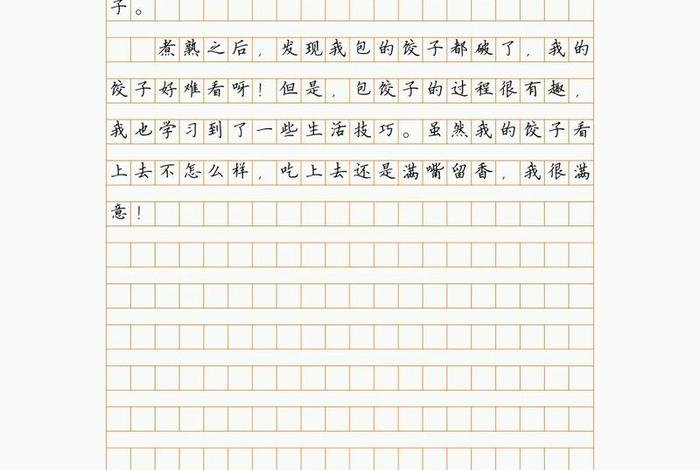 子。
煮熟之后，发现我包的饺子都破了，我的
饺子好难看呀！但是，包饺子的过程很有趣，
我也学习到了一些生活技巧。虽然我的饺子看
上去不怎么样，吃上去还是满嘴留香，我很满
意！